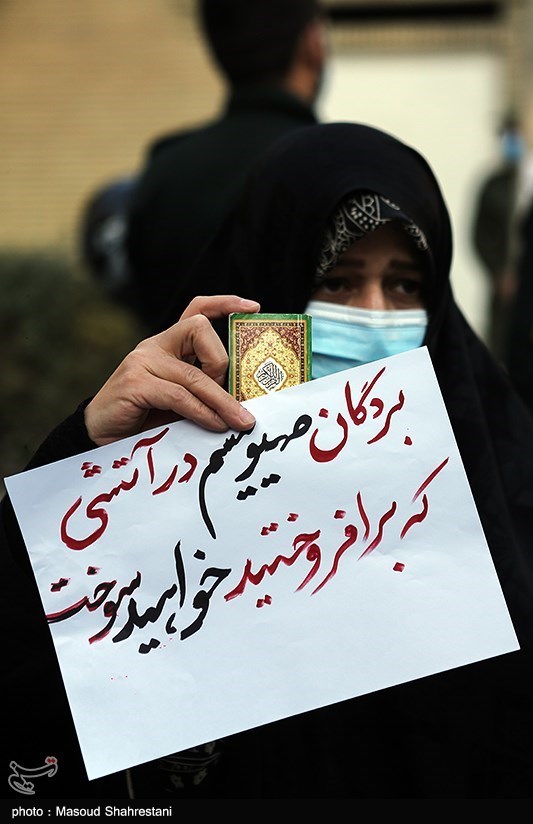 بردگان صهیونیسم در آتشی
که برافروختید خواهید سوخت
photo : Masoud Shahrestani